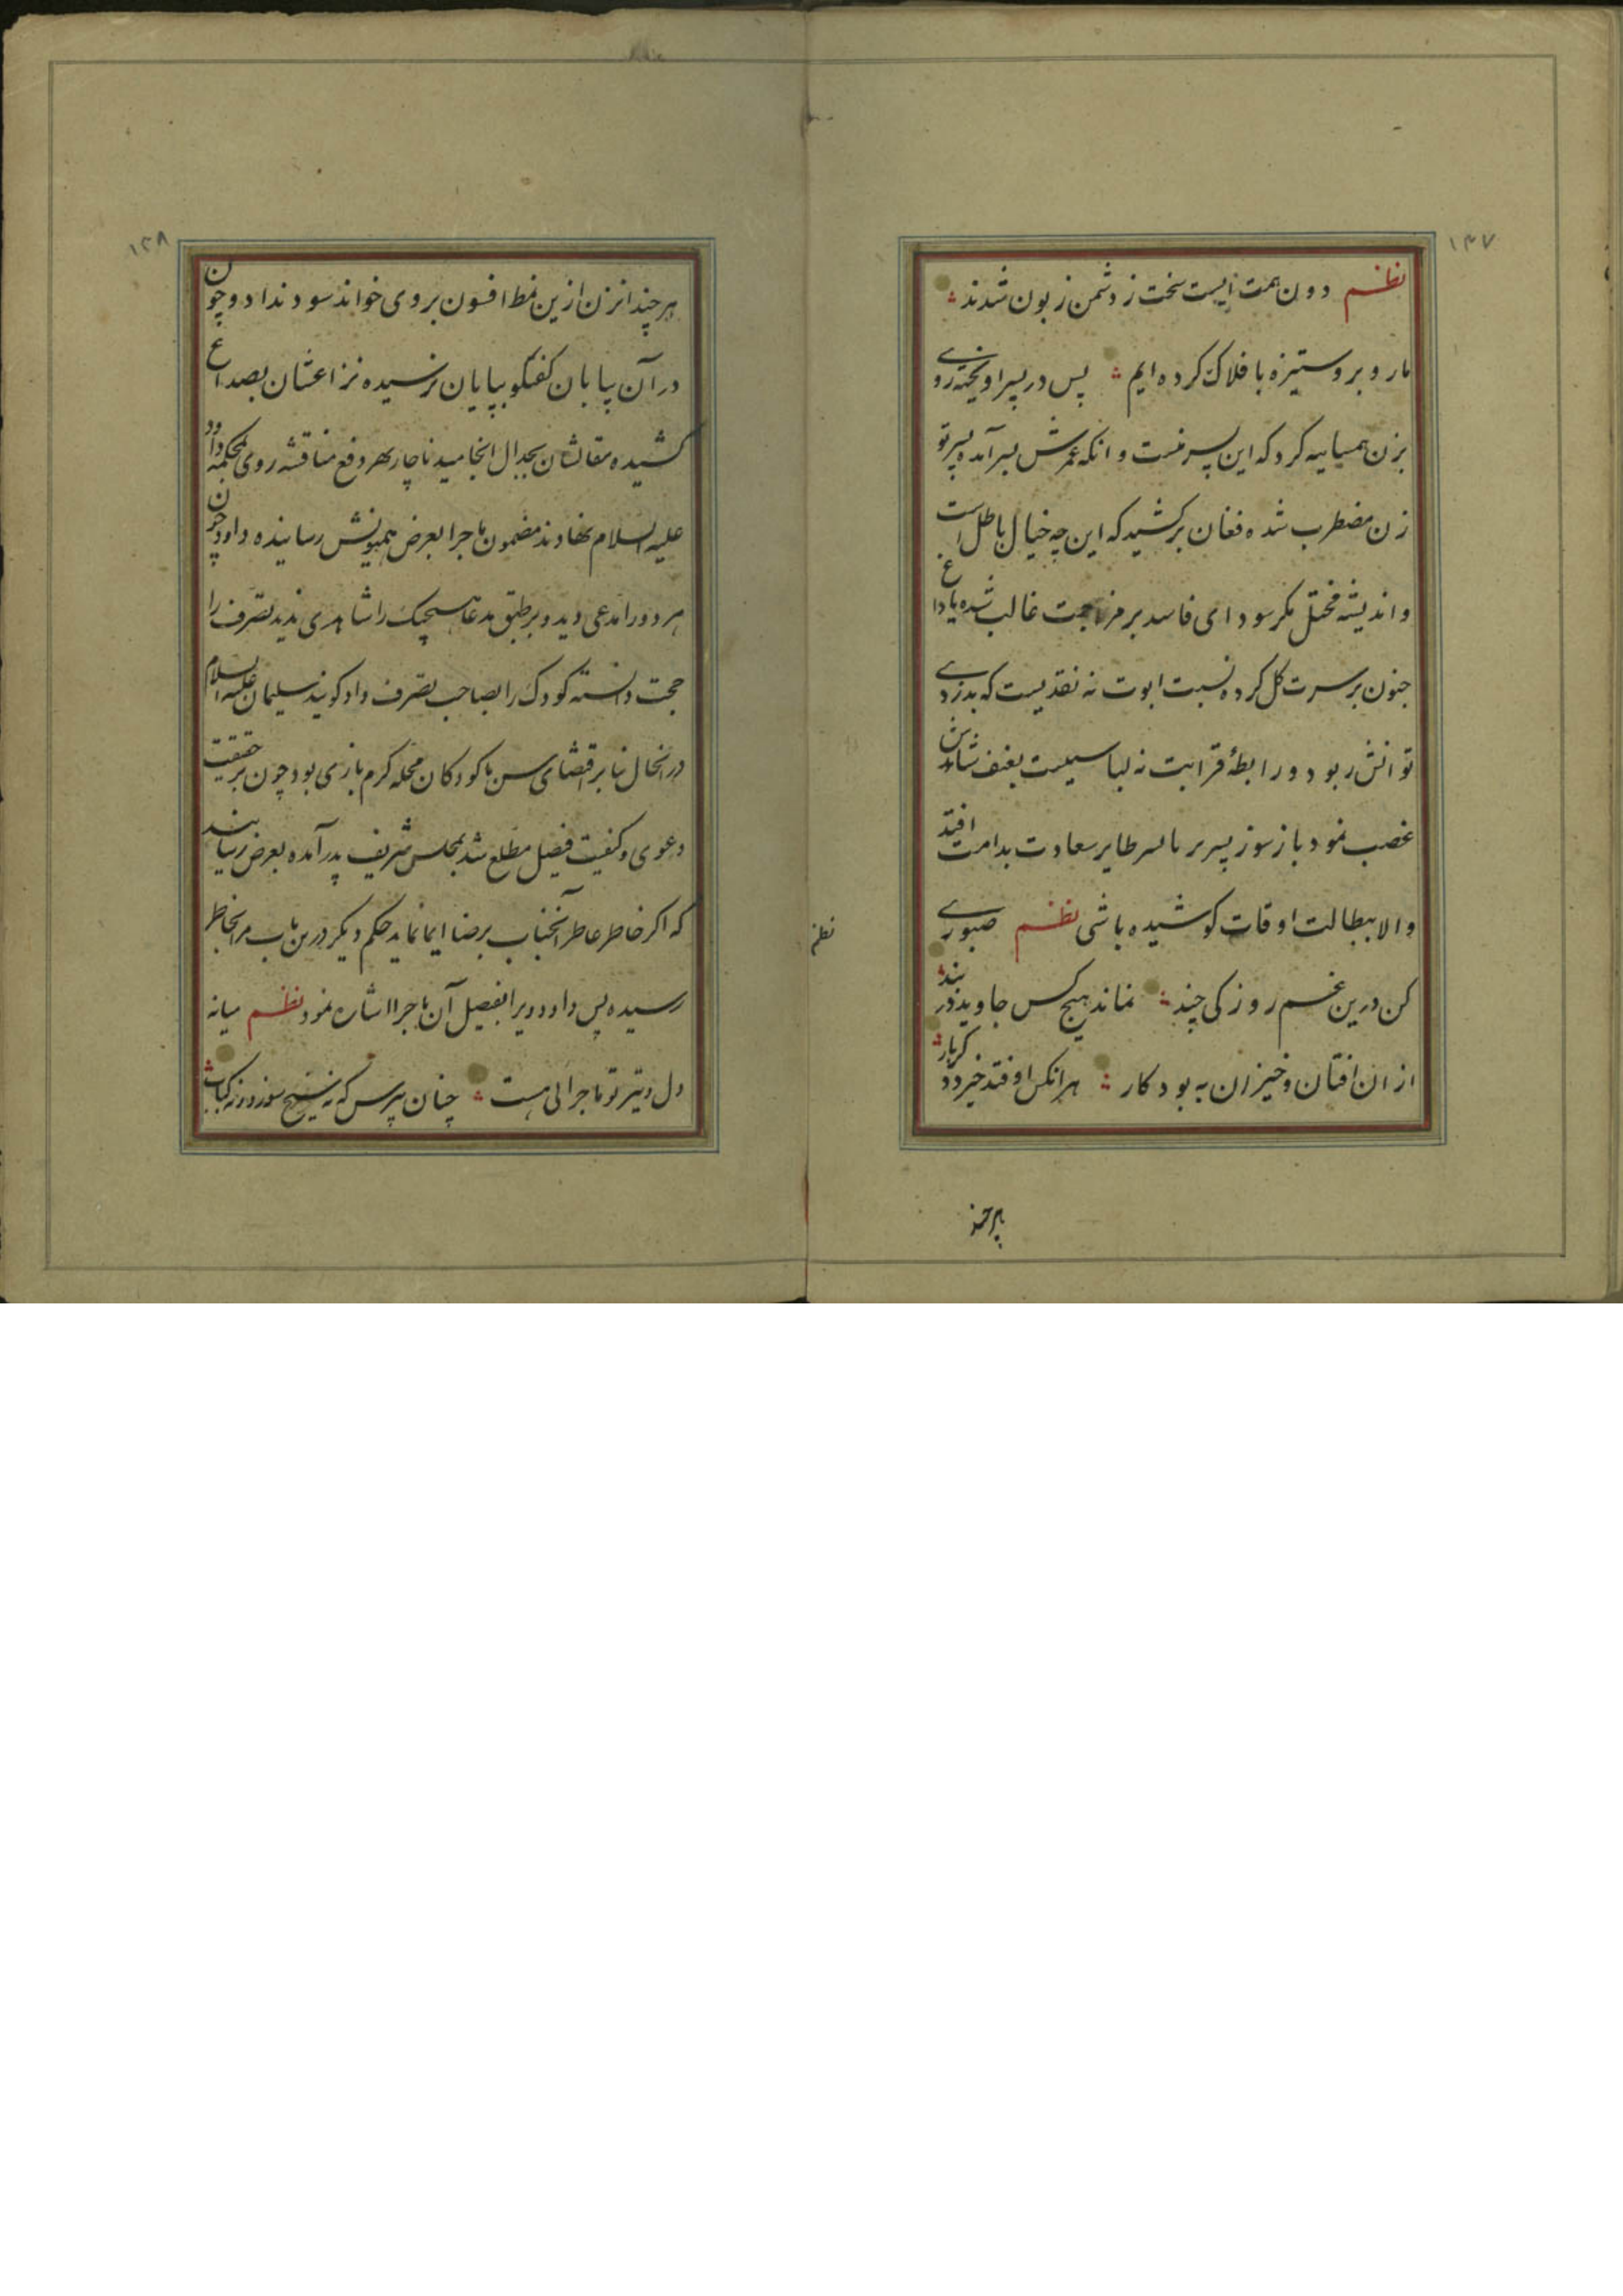 ١٣٧
نظم دون همت ایست سخت ز دشمن زبون شدند
ما رو برو ستیزه با فلاک کرده ایم پس در پسر اویخته روے
بزن همسایه کرد که این پسر منست و انکه عمرش بسر آمده پسر تو
زن مضطرب شده فغان برکشید که این چه خیال باطل است
و اندیشه مختل مکر سودای فاسد بر مزاجت غالب شده یا داع
جنون بر سرت کل کرده نسبت ابوت نه نقدیست که بدزدے
توانش ربود و رابطهٔ قرابت نه لباسیست بعنف شاید
غصب نمود باز سوز پسر بر ما لسر طایر سعادت بدامت افتد
والا ببطالت اوقات کوشیده باشی نظم صبورے
کن درین غم روزکی چند نماند هیچ کس جاوید در بند
از ان افتان و خیزان به بود کار هر انکس اوفتد خیزد
هرچند
١٣٨
هرچند انزن ازین نمط افسون بروی خواند سود نداد و چون
در آن بیابان کفتکو بپایان نرسیده نزاعشان بصداع
کشیده مقالشان بجدال انجامید ناچار بهر دفع مناقشه روی بمحکمه داود
علیه السلام نهادند مضمون ماجرا بعرض همیونش رسانیده داود چون
هر دو را مدعی دید و بر طبق مدعا هیچیک را شاهدی ندید تصرف را
حجت دانسته کودک را بصاحب تصرف داد کویند سلیمان علیه السلام
در انحال بنا بر اقتضای سن با کودکان محله کرم بازی بود چون بر حقیقت
دعوی و کیفیت فیصل مطلع شد بمجلس شریف پدر آمده بعرض رسانید
که اکر خاطر عاطر آنجناب برضا ایما نماید حکم دیکر درین باب مرا بخاطر
رسیده پس داود ویرا بفیصل آن ماجرا اشاره نمود نظم میانه
دل و تیر تو ماجرائی هست چنان بپرس که نه سیخ سوزد و نه کباب
نظم